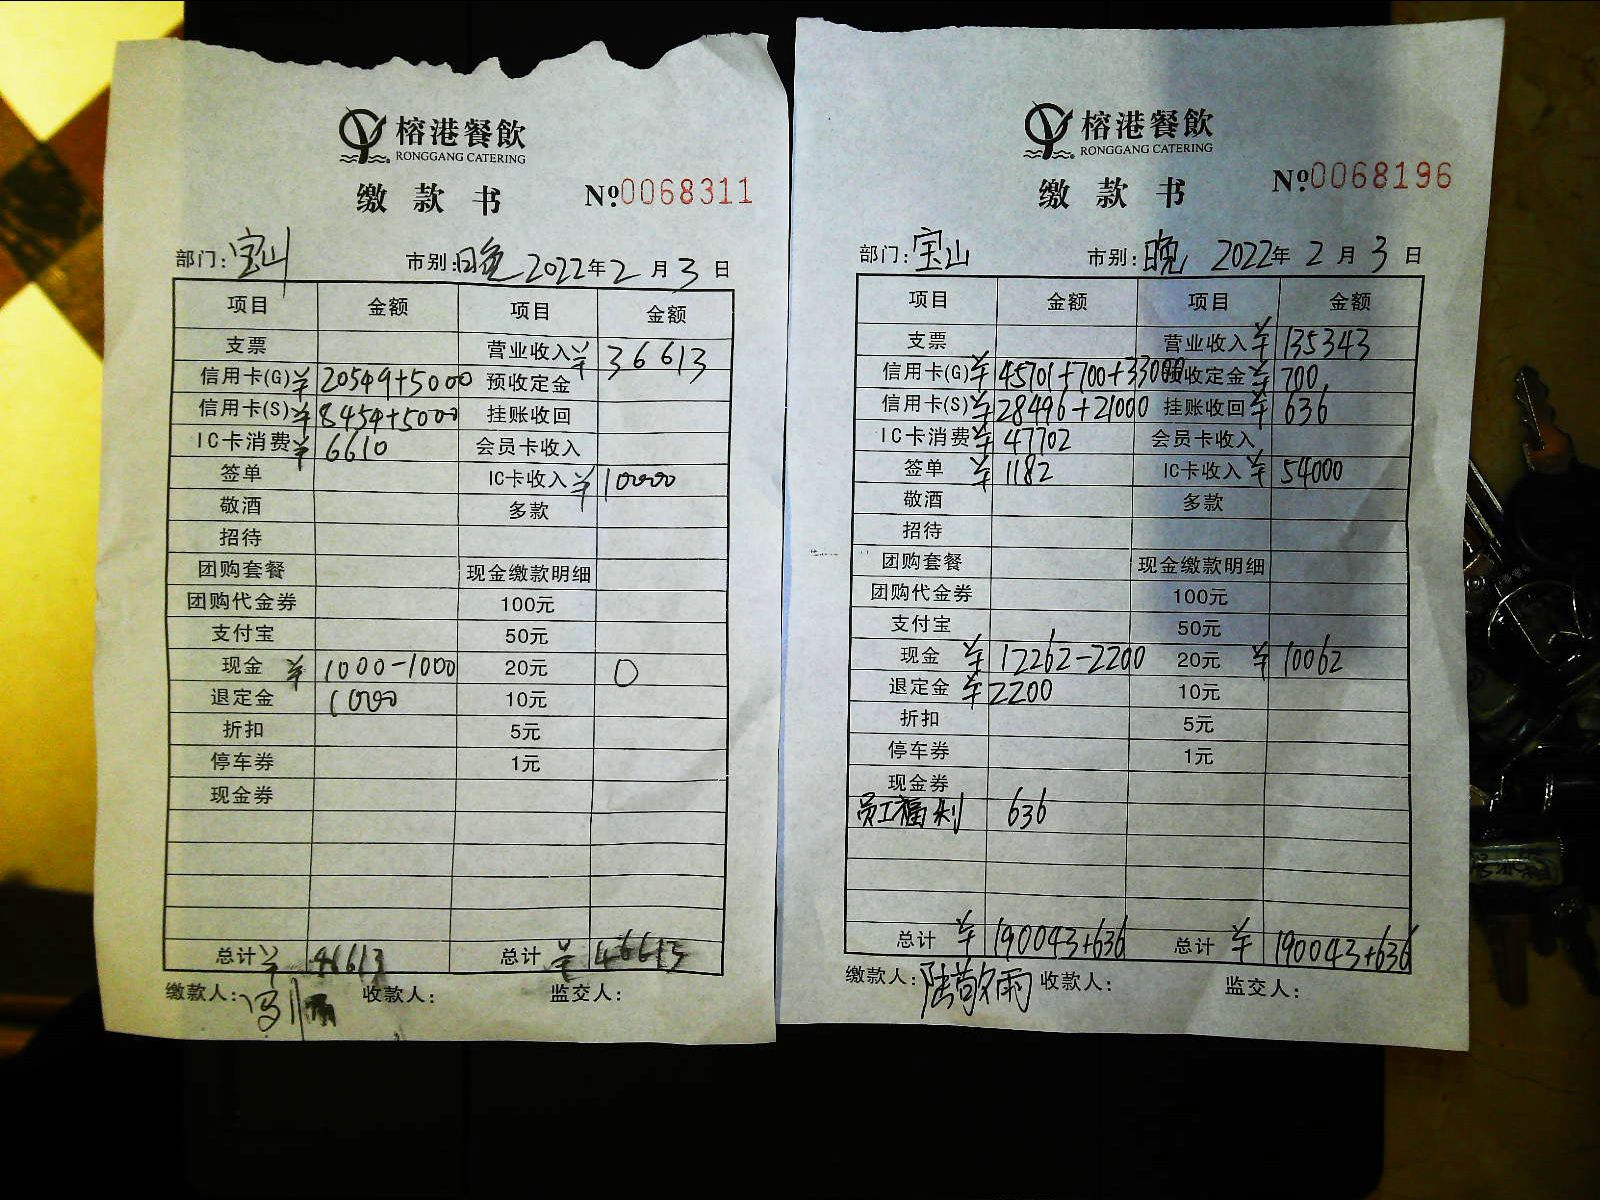 榕港餐飲
RONGGANG CATERING
缴款书 №0068311
部门:宝山 市别:晚 2022年2月3日
项目 金额 项目 金额
支票 营业收入 ¥36613
信用卡(G) ¥20549+5000 预收定金
信用卡(S) ¥8454+5000 挂账收回
IC卡消费 ¥6610 会员卡收入
签单 IC卡收入 ¥10000
敬酒 多款
招待
团购套餐 现金缴款明细
团购代金券 100元
支付宝 50元
现金 ¥1000-1000 20元 0
退定金 1000 10元
折扣 5元
停车券 1元
现金券
总计 ¥46613 总计 ¥46613
缴款人: 收款人: 监交人:
榕港餐飲
RONGGANG CATERING
缴款书 №0068196
部门:宝山 市别:晚 2022年2月3日
项目 金额 项目 金额
支票 营业收入 ¥135343
信用卡(G) ¥45701+700+33000 预收定金 ¥700
信用卡(S) ¥28496+21000 挂账收回 ¥636
IC卡消费 ¥47702 会员卡收入
签单 ¥1182 IC卡收入 ¥54000
敬酒 多款
招待
团购套餐 现金缴款明细
团购代金券 100元
支付宝 50元
现金 ¥12262-2200 20元 ¥10062
退定金 ¥2200 10元
折扣 5元
停车券 1元
现金券
员工福利 636
总计 ¥190043+636 总计 ¥190043+636
缴款人:陆敬雨 收款人: 监交人: